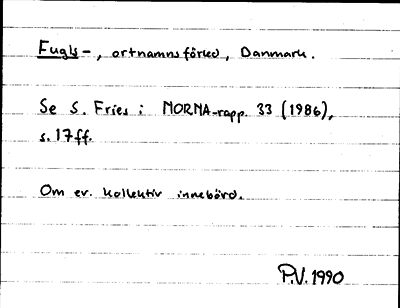 Fugls-, ortnamnsförled, Danmark.
Se S. Fries i NORNA-rapp. 33 (1986),
s. 17ff.
Om ev. kollektiv innebörd.
P.V. 1990